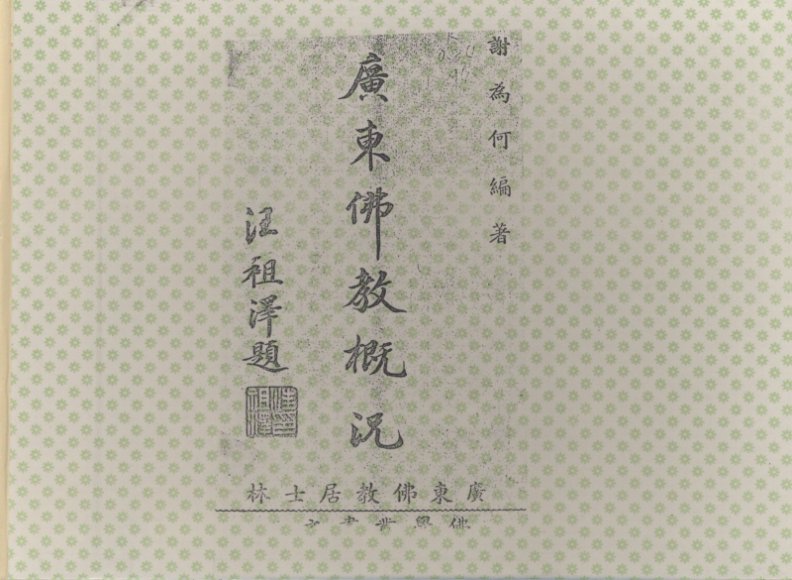 謝為何編著
廣東佛教概況
汪祖澤題
廣東佛教居士林